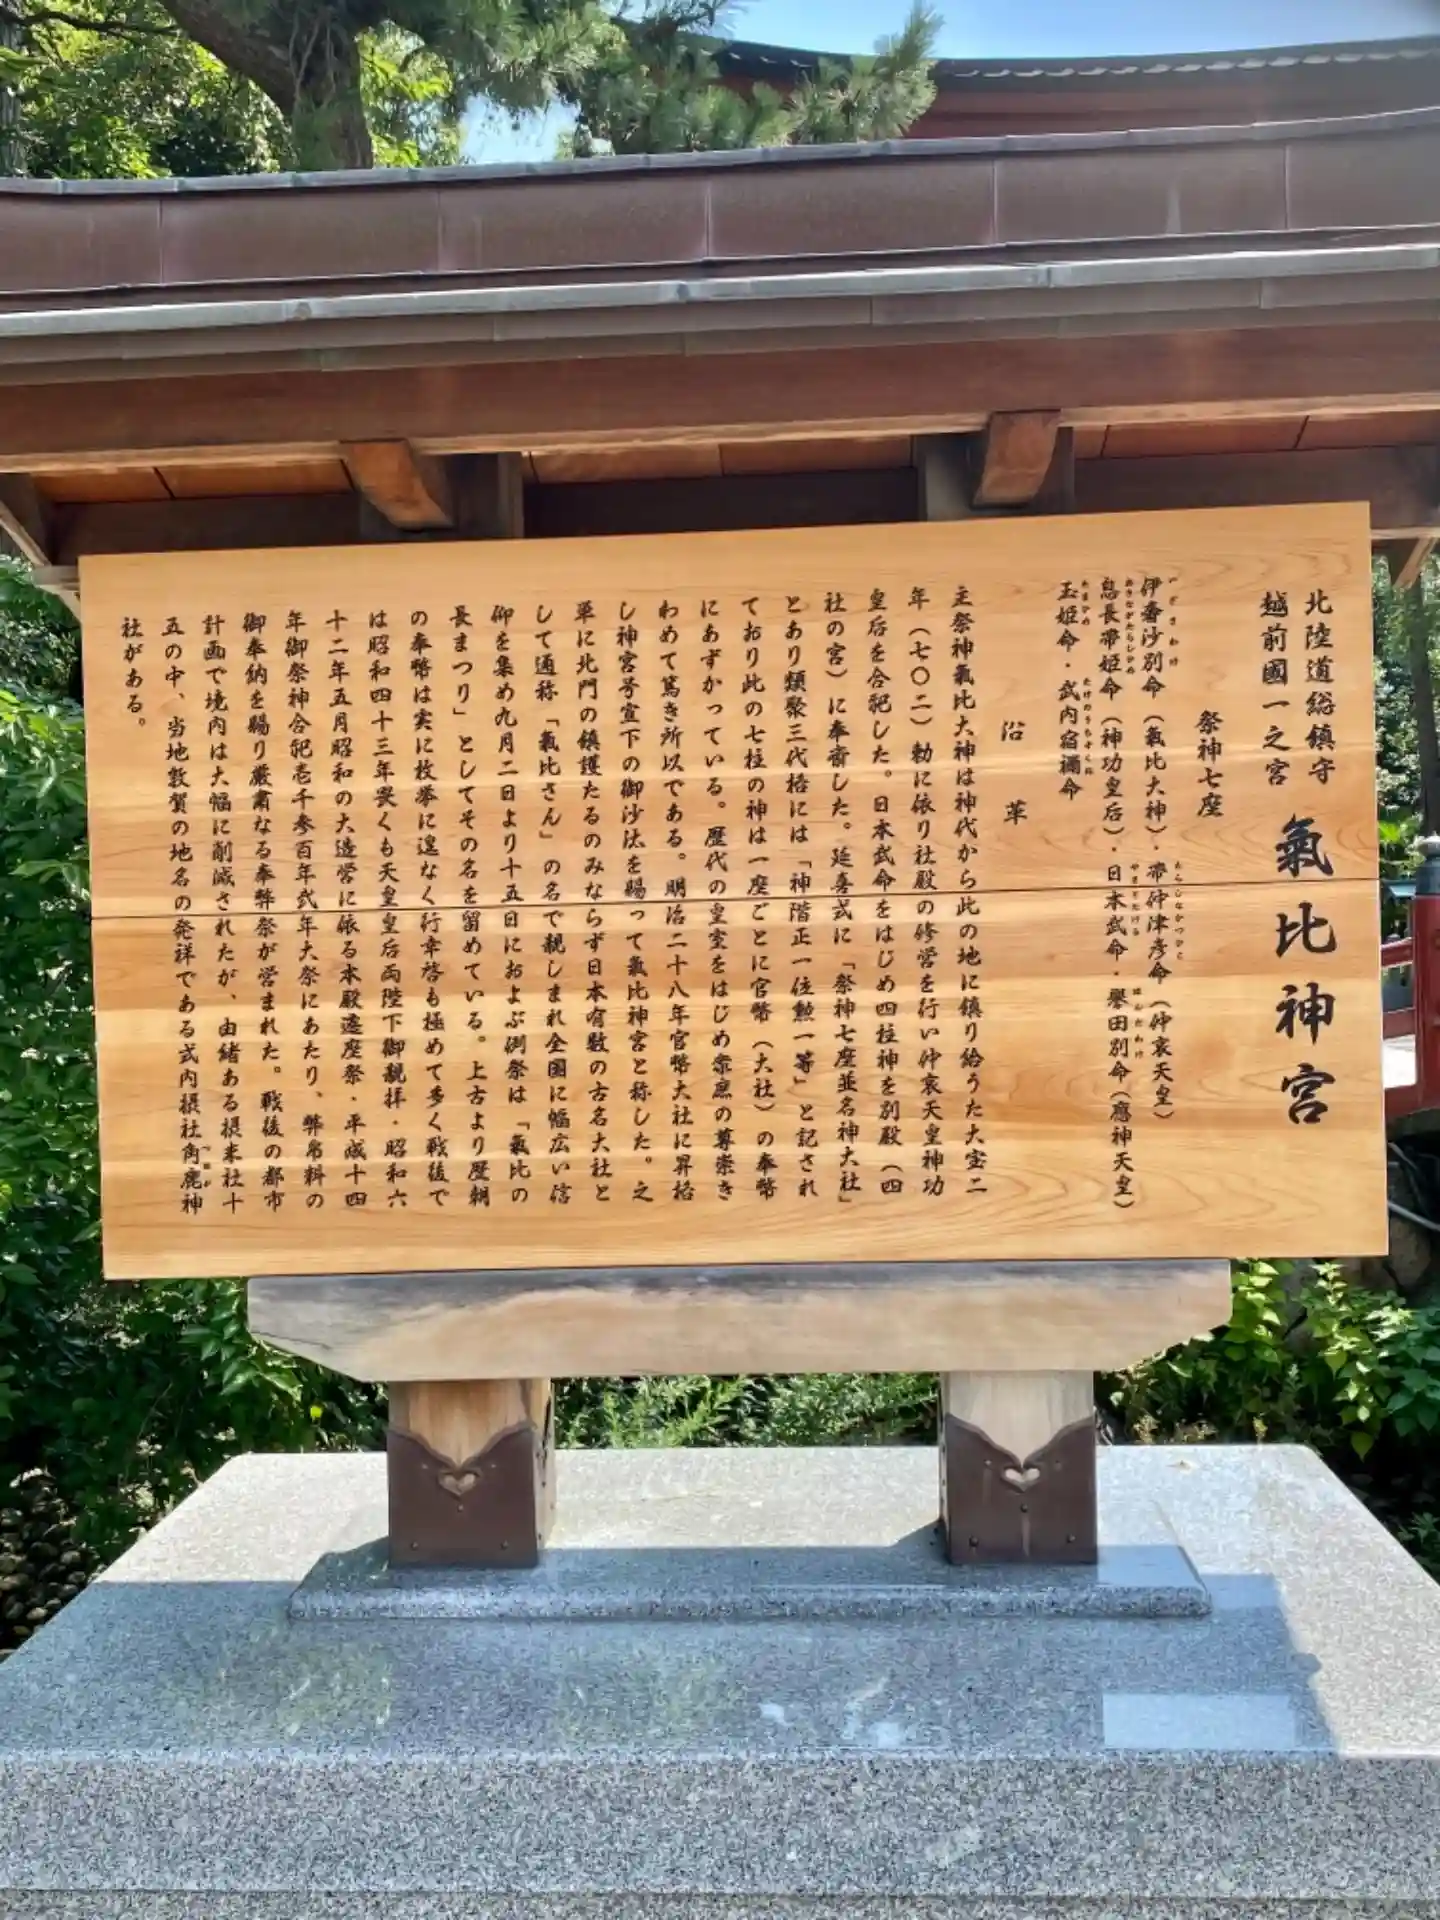 北陸道総鎮守
越前國一之宮
氣比神宮
祭神七座
伊奢沙別命（氣比大神）・帶仲津彦命（仲哀天皇）
いざさわけ
たらしなかつひこ
息長帶姫命（神功皇后）・日本武命・譽田別命（應神天皇）
おきながたらしひめ
やまとたける
ほんだわけ
玉姫命・武内宿禰命
たまひめ
たけのうちすくね
沿革
主祭神氣比大神は神代から此の地に鎮り給うた大宝二
年（七〇二）勅に依り社殿の修営を行い仲哀天皇神功
皇后を合祀した。日本武命をはじめ四柱神を別殿（四
社の宮）に奉斎した。延喜式に「祭神七座並名神大社」
とあり類聚三代格には「神階正一位勲一等」と記され
ており此の七柱の神は一座ごとに官幣（大社）の奉幣
にあずかっている。歴代の皇室をはじめ衆庶の尊崇き
わめて篤き所以である。明治二十八年官幣大社に昇格
し神宮号宣下の御沙汰を賜って氣比神宮と称した。之
單に北門の鎮護たるのみならず日本有数の古名大社と
して通称「氣比さん」の名で親しまれ全国に幅広い信
仰を集め九月二日より十五日におよぶ例祭は「氣比の
長まつり」としてその名を留めている。上古より歴朝
の奉幣は実に枚挙に遑なく行幸啓も極めて多く戦後で
は昭和四十三年畏くも天皇皇后両陛下御親拝・昭和六
十二年五月昭和の大造営に依る本殿遷座祭・平成十四
年御祭神合祀壱千参百年式年大祭にあたり、幣帛料の
御奉納を賜り厳粛なる奉幣祭が営まれた。戦後の都市
計画で境内は大幅に削減されたが、由緒ある摂末社十
五の中、当地敦賀の地名の発祥である式内摂社角鹿神
つぬが
社がある。